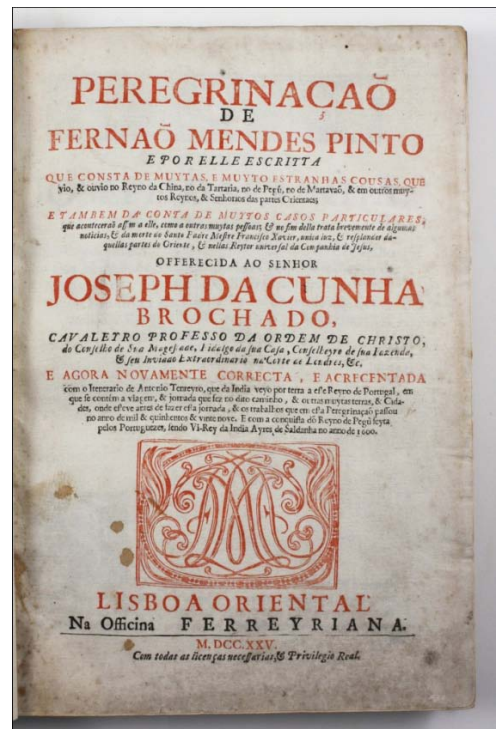 PEREGRINACAÕ
DE
FERNAÕ MENDES PINTO
E POR ELLE ESCRITTA
QUE CONSTA DE MUYTAS, E MUYTO ESTRANHAS COUSAS, QUE
vio, & ouvio no Reyno da China, no da Tartaria, no de Pegù, no de Martavaõ, & em outros muy-
tos Reynos, & Senhorios das partes Orientaes;
E TAMBEM DA CONTA DE MUYTOS CASOS PARTICULARES,
que aconteceraõ assim a elle, como a outras muytas pessoas; & no fim della trata brevemente de algumas
noticias, & da morte do Santo Padre Mestre Francisco Xavier, unica luz, & resplandor da-
quellas partes do Oriente, & nellas Reytor universal da Companhia de Jesus,
OFFERECIDA AO SENHOR
JOSEPH DA CUNHA
BROCHADO,
CAVALEYRO PROFESSO DA ORDEM DE CHRISTO,
do Conselho de Sua Magestade, Fidalgo da sua Casa, Conselheyro de sua Fazenda,
& seu Inviado Extraordinario na Corte de Londres, &c.
E AGORA NOVAMENTE CORRECTA, E ACRECENTADA
com o Itenerario de Antonio Tenreyro, que da India veyo por terra a este Reyno de Portugal, em
que se contèm a viagem, & jornada que fez no dito caminho, & outras muytas terras, & Cida-
des, onde esteve antes de fazer esta jornada, & os trabalhos que em esta Peregrinaçaõ passou
no anno de mil & quinhentos & vinte nove. E com a conquista do Reyno de Pegù feyta
pelos Portuguezes, sendo Vi-Rey da India Ayres de Saldanha no anno de 1600.
LISBOA ORIENTAL
Na Officina FERREYRIANA.
M. DCC. XXV.
Com todas as licenças necessarias, & Privilegio Real.